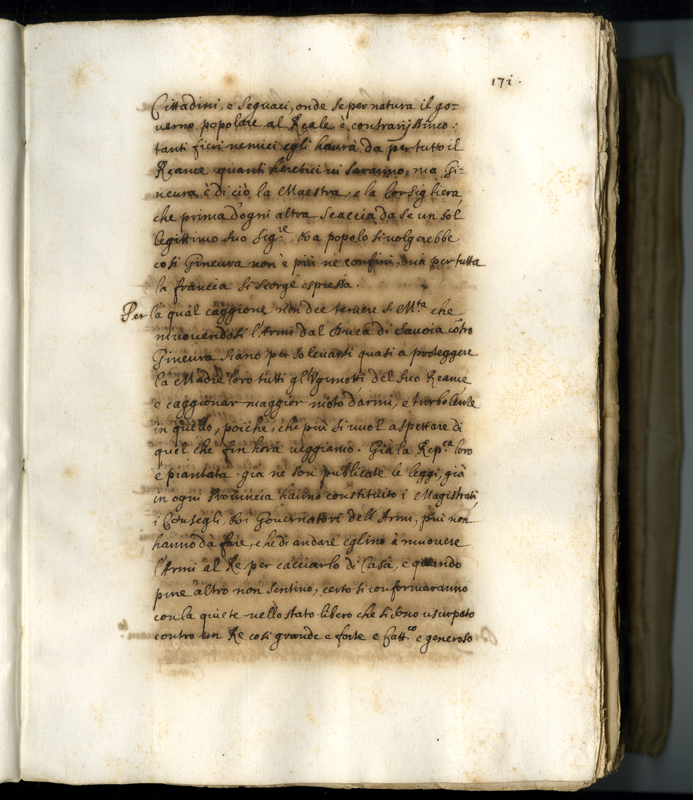 171.
Cittadini, e seguaci, onde se per natura il go-
verno popolare al Reale è contrarijssimo:
tanti fieri nemici egli haurà da per tutto il
Reame quanti heretici ui saranno, ma Gi-
neura è di ciò la Maestra, e la Consigliera,
che prima d'ogni altra scaccia da se un sol
legittimo suo Sig.re, & a popolo si uolgerebbe
così Gineura non è più ne confini, ma per tutta
la francia si scorge espressa.
Per la qual caggione non dee temere S. M.tà che
muouendosi l'Armi dal Duca di Sauoia cõtro
Gineura siano per solleuarsi quasi a proteggere
la Madre loro tutti gl'Vgunotti del suo Reame
e caggionar maggior moto d'armi, e turbolenze
in quello, poiche, che più si uuol aspettare di
quel che fin hora ueggiamo. Già la Rep.ca loro
è piantata, già ne son publicate le leggi, già
in ogni Prouincia hanno constituito i Magistrati,
i Consegli, & i Gouernatori dell'Armi, più non
hanno da fare, che di andare eglino à muouere
l'Armi al Re per cacciarlo di Casa, e quando
pure altro non sentino, certo si conformaranno
con la quiete nello stato libero che si sono usurpato
contro un Re così grande e forte e Catt.co e generoso